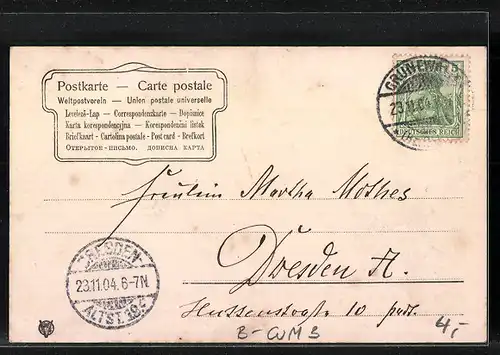 Postkarte — Carte postale
Weltpostverein — Union postale universelle
Levelező-Lap — Correspondenzkarte — Dopisnice
Karta korespondencyjna — Korespondenční lístek
Briefkaart - Cartolina postale - Post card - Brefkort
Открытое-письмо. дописна карта
23.11.04
DEUTSCHES REICH
Fräulein Martha Mothes
Dresden A.
DRESDEN-
23.11.04. 6-7N
ALTST. 19.
Hussenstraße 10 part.
4,-